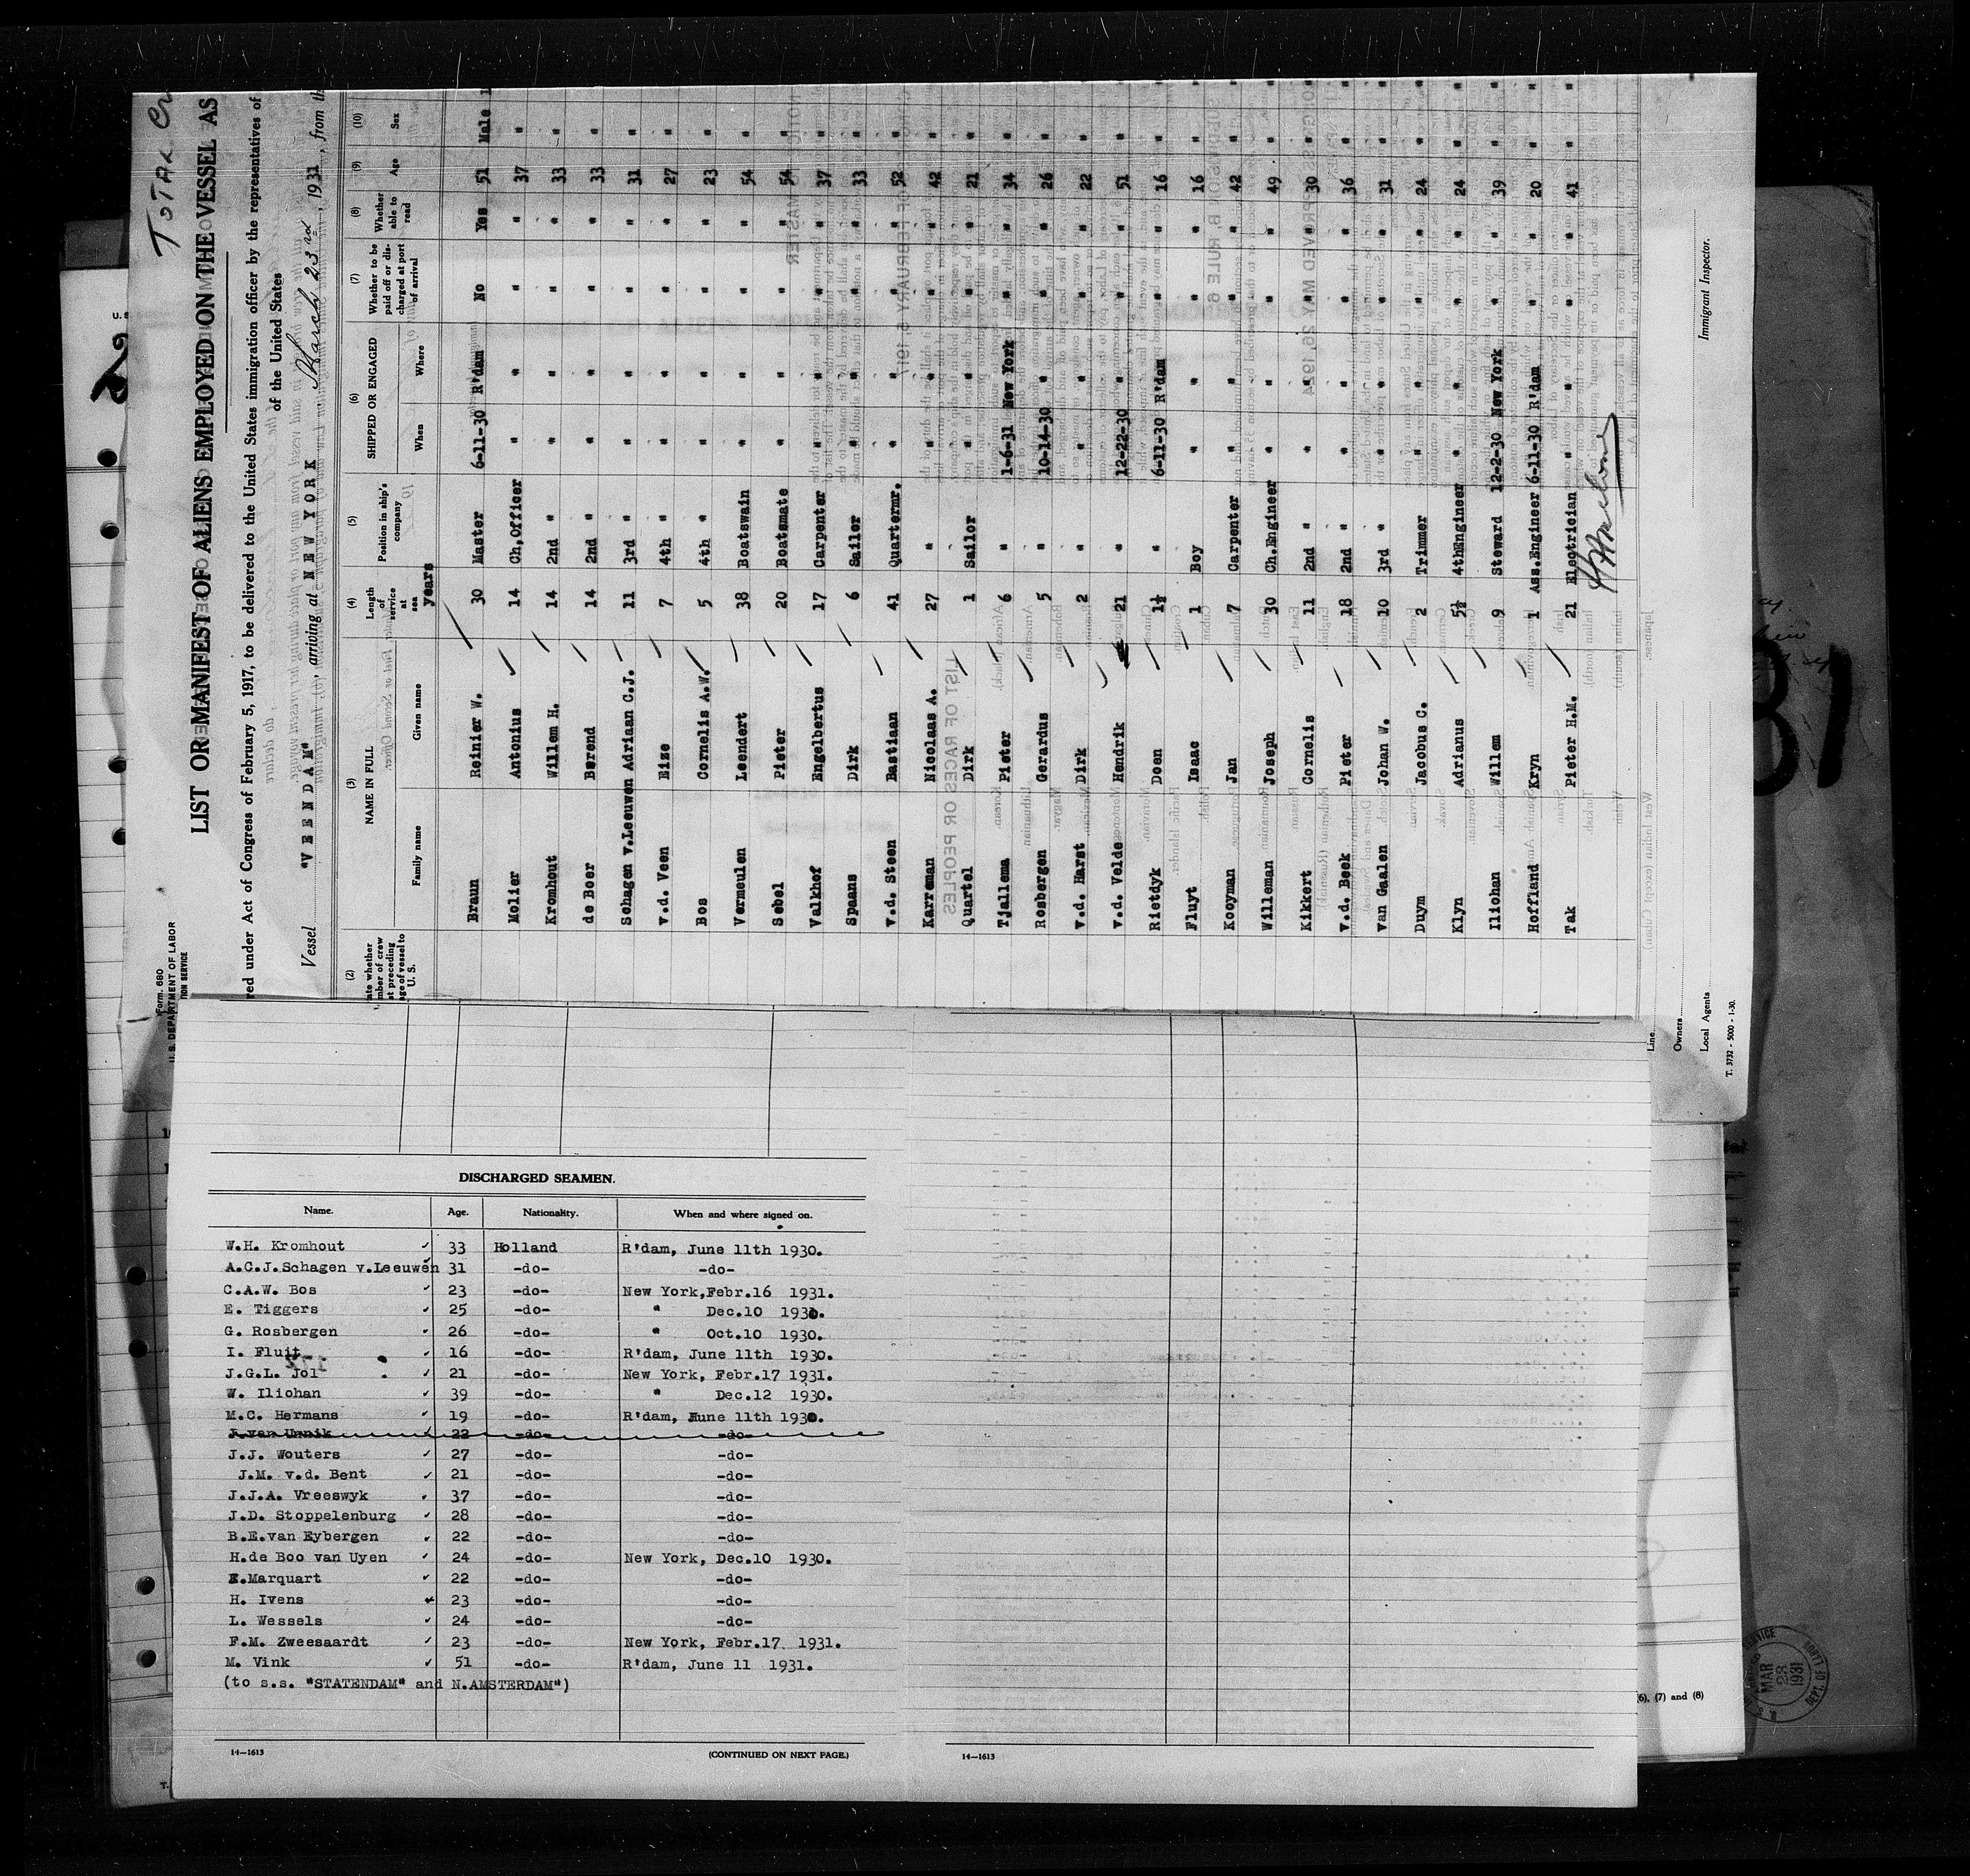 TOTAL Cr
LIST OR MANIFEST OF ALIENS EMPLOYED ON THE VESSEL AS
red under Act of Congress of February 5, 1917, to be delivered to the United States immigration officer by the representatives of
of the United States
Vessel "VEENDAM", arriving at NEW YORK, March 23rd, 1931, from th
(2) (3) (4) (5) (6) (7) (8) (9) (10)
NAME IN FULL Length of service at sea Position in ship's company SHIPPED OR ENGAGED Whether to be paid off or discharged at port of arrival Whether able to read Age Sex
Family name Given name years When Where
Braun Reinier W. 30 Master 6-11-30 R'dam No Yes 51 Male
Molier Antonius 14 Ch,Officer " " " " 37 "
Kromhout Willem H. 14 2nd " " " " " 33 "
de Boer Berend 14 2nd " " " " " 33 "
Schagen v.Leeuwen Adrian C.J. 11 3rd " " " " " 31 "
v.d. Veen Eize 7 4th " " " " " 27 "
Bos Cornelis A.W. 5 4th " " " " " 23 "
Vermeulen Leendert 38 Boatswain " " " " 54 "
Sebel Pieter 20 Boatsmate " " " " 54 "
Valkhof Engelbertus 17 Carpenter " " " " 37 "
Spaans Dirk 6 Sailor " " " " 33 "
v.d. Steen Bastiaan 41 Quartermr. " " " " 52 "
Karreman Nicolaas A. 27 " " " " " 42 "
Quartel Dirk 1 Sailor " " " " 21 "
Tjallema Pieter 6 " 1-6-31 New York " " 34 "
Rosbergen Gerardus 5 " 10-14-30 " " " 26 "
v.d. Harst Dirk 2 " " " " " 22 "
v.d. Velde Hendrik 21 " 12-22-30 " " " 51 "
Rietdyk Doen 1½ " 6-11-30 R'dam " " 16 "
Fluyt Isaac 1 Boy " " " " 16 "
Kooyman Jan 7 Carpenter " " " " 42 "
Willeman Joseph 30 Ch.Engineer " " " " 49 "
Kikkert Cornelis 11 2nd " " " " " 30 "
v.d. Beek Pieter 18 2nd " " " " " 36 "
van Gaalen Johan W. 10 3rd " " " " " 31 "
Duym Jacobus C. 2 Trimmer " " " " 24 "
Klyn Adrianus 5½ 4thEngineer " " " " 24 "
Iliohan Willem 9 Steward 12-2-30 New York " " 39 "
Hoffland Kryn 1 Ass.Engineer 6-11-30 R'dam " " 20 "
Tak Pieter H.M. 21 Electrician " " " " 41 "
Immigrant Inspector.
Line
Owners
Local Agents
T. 3732 - 5000 - 1-30.
Form. 680
U.S. DEPARTMENT OF LABOR
TION SERVICE
DISCHARGED SEAMEN.
Name. Age. Nationality. When and where signed on.
W.H. Kromhout 33 Holland R'dam, June 11th 1930.
A.C.J.Schagen v.Leeuwen 31 -do- -do-
C.A.W. Bos 23 -do- New York,Febr.16 1931.
E. Tiggers 25 -do- " Dec.10 1930.
G. Rosbergen 26 -do- " Oct.10 1930.
I. Fluit 16 -do- R'dam, June 11th 1930.
J.G.L. Jol 21 -do- New York, Febr.17 1931.
W. Iliohan 39 -do- " Dec.12 1930.
M.C. Hermans 19 -do- R'dam, June 11th 1930.
J.van Unnik 22 -do- -do-
J.J. Wouters 27 -do- -do-
J.M. v.d. Bent 21 -do- -do-
J.J.A. Vreeswyk 37 -do- -do-
J.D. Stoppelenburg 28 -do- -do-
B.E.van Eybergen 22 -do- -do-
H.de Boo van Uyen 24 -do- New York, Dec.10 1930.
E.Marquart 22 -do- -do-
H. Ivens 23 -do- -do-
L. Wessels 24 -do- -do-
F.M. Zweesaardt 23 -do- New York, Febr.17 1931.
M. Vink 51 -do- R'dam, June 11 1931.
(to s.s. "STATENDAM" and N.AMSTERDAM")
14—1613 (CONTINUED ON NEXT PAGE.)
14—1613
(6), (7) and (8)
MAR 23 1931